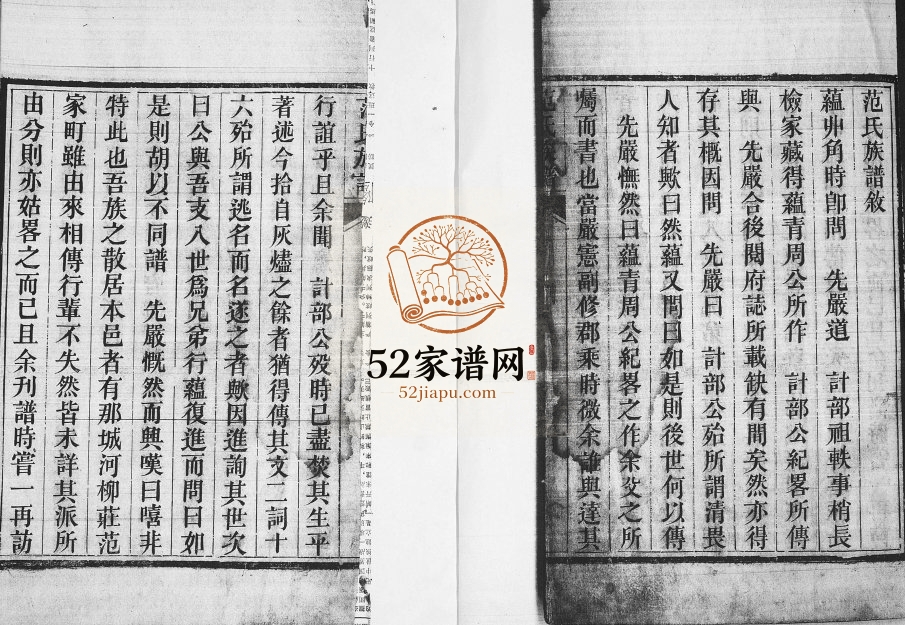 范氏族譜敘
蘊丱角時卽問　先嚴道　計部祖軼事梢長
檢家藏得蘊青周公所作　計部公紀畧所傳
與　先嚴合後閱府誌所載缺有間矣然亦得
存其概因問　先嚴曰　計部公殆所謂清畏
人知者歟曰然蘊又問曰如是則後世何以傳
先嚴憮然曰蘊青周公紀畧之作余父之所
囑而書也當嚴憲副修郡乘時微余誰與達其
范氏族譜
行誼乎且余聞　計部公歿時已盡焚其生平
著述今拾自灰燼之餘者猶得傳其文二詞十
六殆所謂逃名而名遂之者歟因進詢其世次
曰公與吾支入世爲兄弟行蘊復進而問曰如
是則胡以不同譜　先嚴慨然而興嘆曰嘻非
特此也吾族之散居本邑者有那城河柳莊范
家町雖由來相傳行輩不失然皆未詳其派所
由分則亦姑畧之而已且余刊譜時嘗一再訪
52家谱网
52jiapu.com